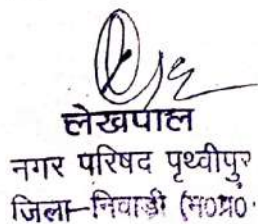 लेखपाल
नगर परिषद पृथ्वीपुर
जिला-निवाड़ी (म०प्र०